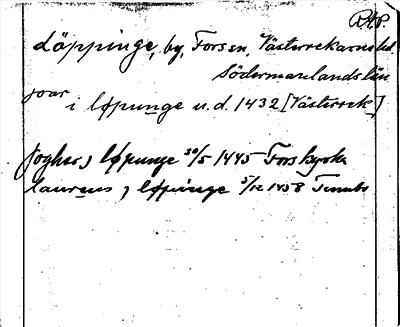 RAP.
Löppinge, by, Forssa s:n, Västerrekarne hd.
Södermanlands län
joar
i løpunge u.d. 1432 [Västerrek]
Jogher j løpunge 30/5 1445 Fors kyrka
laurens j løpinge 5/12 1458